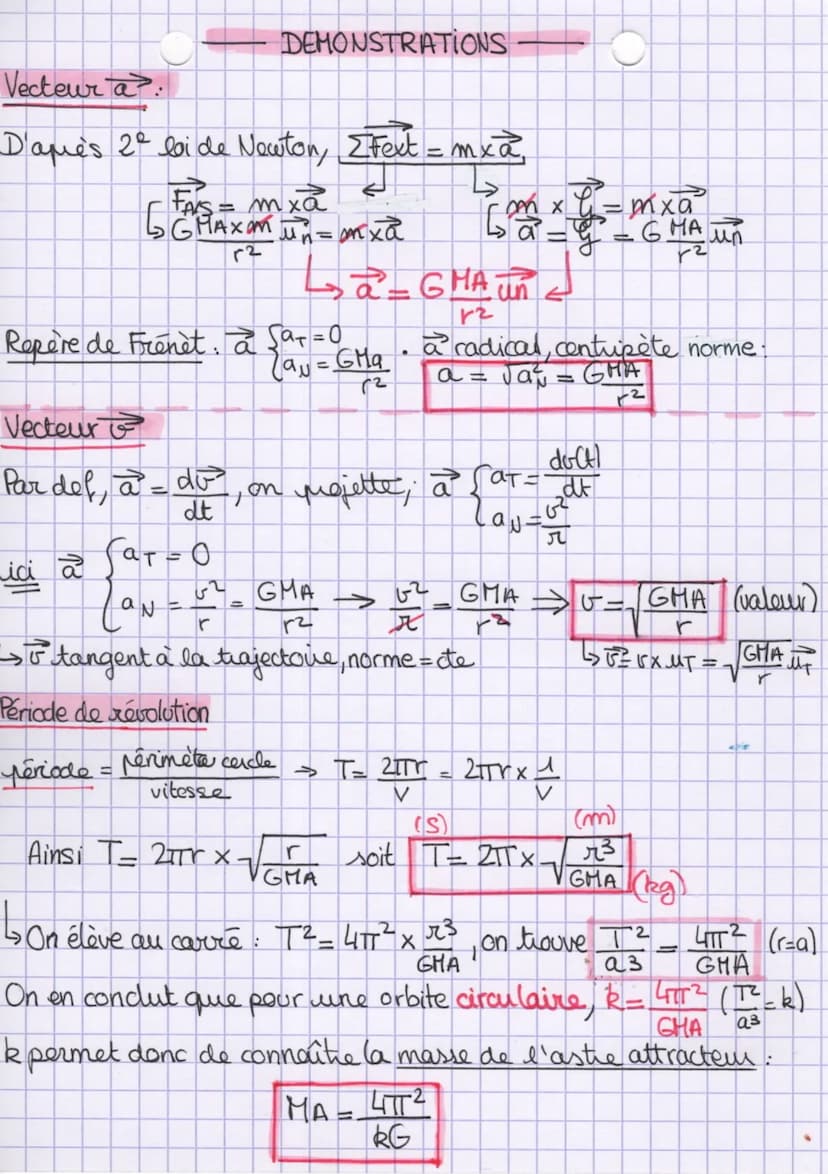 DEMONSTRATIONS
Vecteur a⃗ :
D'après 2e loi de Newton, ΣFext⃗ = m x a⃗
F⃗A/S = m x a⃗
↳ G MA x m / r² un⃗ = m x a⃗
m x 𝒢⃗ = m x a⃗
↳ a⃗ = 𝒢⃗ = G MA / r² un⃗
↳ a⃗ = G MA / r² un⃗
Repère de Frénèt : a⃗ { aT = 0 ; aN = GMa / r² . a⃗ radical, centripète norme :
a = √a²N = GMA / r²
Vecteur v⃗
Par def, a⃗ = dv⃗ / dt, on projette, a⃗ { aT = dv(t) / dt ; aN = v² / r
ici a⃗ { aT = 0 ; aN = v² / r = GMA / r² → v² / r = GMA / r² ⇒ v = √(GMA / r) (valeur)
↳ v⃗ tangent à la trajectoire, norme = cte
↳ v⃗ = v x uT = √(GMA / r) uT⃗
Période de révolution
période = périmètre cercle / vitesse → T = 2πr / V = 2πr x 1 / V
(S) (m)
Ainsi T = 2πr x √(r / GMA) soit T = 2π x √(r³ / GMA) (kg)
↳ On élève au carré : T² = 4π² x r³ / GMA, on trouve T² / a3 = 4π² / GMA (r=a)
On en conclut que pour une orbite circulaire, k = 4π² / GMA (T² / a³ = k)
k permet donc de connaître la masse de l'astre attracteur :
MA = 4π² / kG